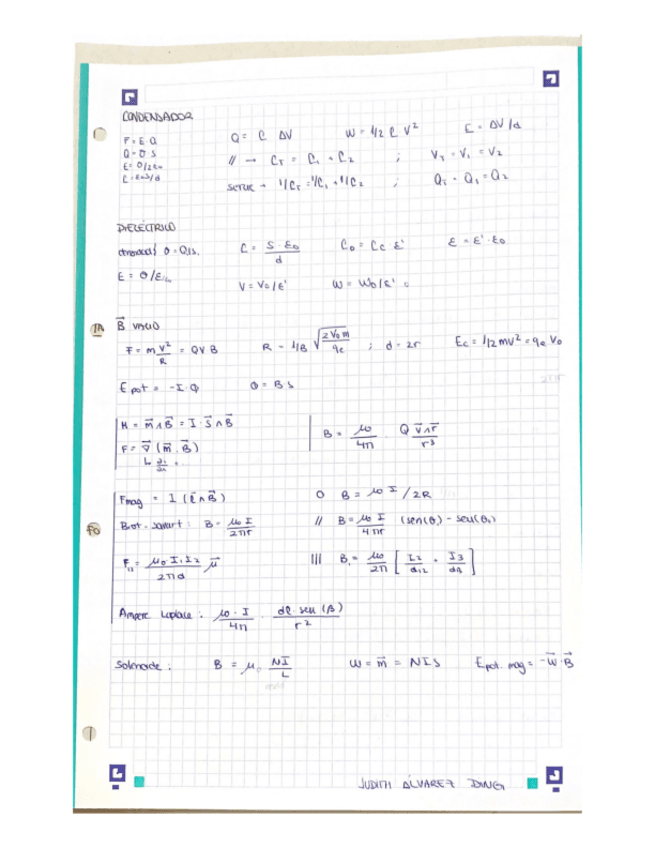 CONDENSADOR
F = E·Q
Q = C ΔV W = 1/2 C V² E = ΔV/d
Q = σ·S
// → CT = C1 + C2 ; VT = V1 = V2
serie → 1/CT = 1/C1 + 1/C2 ; QT = Q1 = Q2
DIELÉCTRICO
densidad σ = Q/S. C = S·ε0/d C0 = Cc ε' ε = ε'·ε0
V = V0/ε' W = W0/ε'
B⃗ VACIO
F = m V²/R = QVB R = 1/B √(2V0m/qe) ; d = 2r Ec = 1/2mv² = qe V0
E pot = -I·Φ Φ = B·S
M = m⃗ ∧ B⃗ = I·S⃗ ∧ B⃗
B = μ0/4π · Q v⃗∧r⃗/r³
F = ∇⃗ (m⃗·B⃗)
Fmag = I (ℓ⃗ ∧ B⃗) O B = μ0 I/2R
Biot-Savart: B = μ0 I/2πr // B = μ0 I/4πr (sen(θ) - sen(θ1)
F12 = μ0 I1 I2/2πd μ⃗ III B1 = μ0/2π [I2/d12 + I3/d13]
Ampere Laplace: μ0·I/4π · dℓ·sen(β)/r²
Solenoide: B = μ0 NI/L W = m⃗ = NIS Epot. mag = -W⃗·B⃗
JUDITH ÁLVAREZ DING